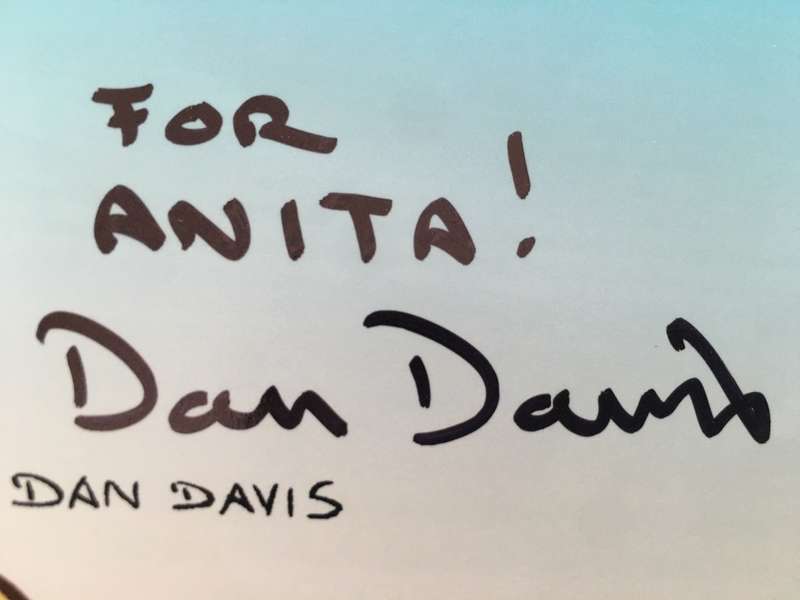 FOR
ANITA!
Dan Davis
DAN DAVIS